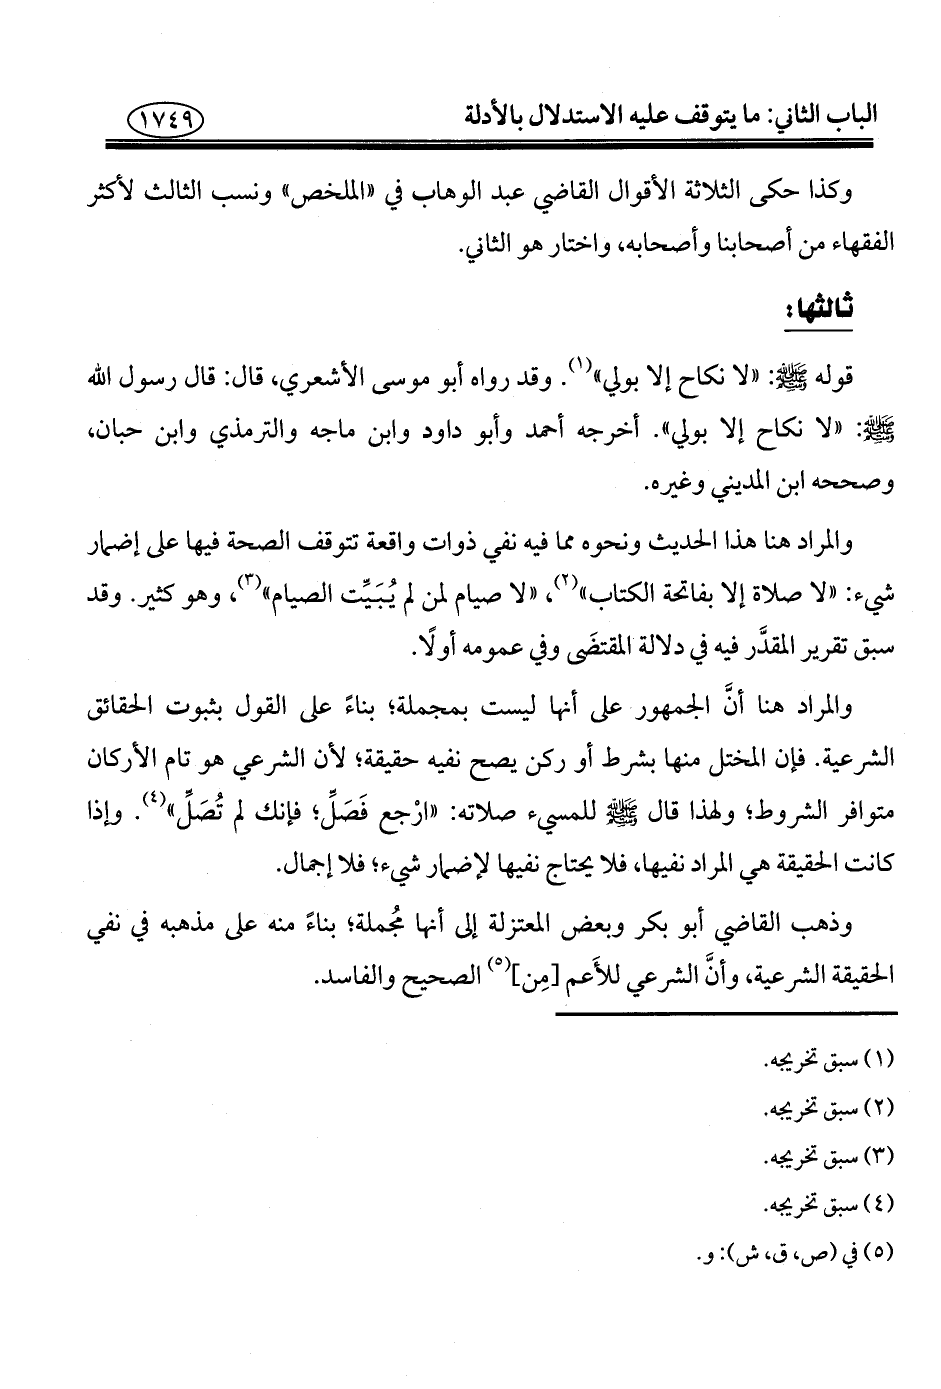 الباب الثاني: ما يتوقف عليه الاستدلال بالأدلة ١٧٤٩
وكذا حكى الثلاثة الأقوال القاضي عبد الوهاب في «الملخص» ونسب الثالث لأكثر
الفقهاء من أصحابنا وأصحابه، واختار هو الثاني.
ثالثها:
قوله ﷺ: «لا نكاح إلا بولي»(١). وقد رواه أبو موسى الأشعري، قال: قال رسول الله
ﷺ: «لا نكاح إلا بولي». أخرجه أحمد وأبو داود وابن ماجه والترمذي وابن حبان،
وصححه ابن المديني وغيره.
والمراد هنا هذا الحديث ونحوه مما فيه نفي ذوات واقعة تتوقف الصحة فيها على إضمار
شيء: «لا صلاة إلا بفاتحة الكتاب»(٢)، «لا صيام لمن لم يُبَيِّت الصيام»(٣)، وهو كثير. وقد
سبق تقرير المقدَّر فيه في دلالة المقتضَى وفي عمومه أولًا.
والمراد هنا أنَّ الجمهور على أنها ليست بمجملة؛ بناءً على القول بثبوت الحقائق
الشرعية. فإن المختل منها بشرط أو ركن يصح نفيه حقيقة؛ لأن الشرعي هو تام الأركان
متوافر الشروط؛ ولهذا قال ﷺ للمسيء صلاته: «ارْجع فَصَلِّ؛ فإنك لم تُصَلِّ»(٤). وإذا
كانت الحقيقة هي المراد نفيها، فلا يحتاج نفيها لإضمار شيء؛ فلا إجمال.
وذهب القاضي أبو بكر وبعض المعتزلة إلى أنها مجُملة؛ بناءً منه على مذهبه في نفي
الحقيقة الشرعية، وأنَّ الشرعي للأَعم [مِن](٥) الصحيح والفاسد.
(١) سبق تخريجه.
(٢) سبق تخريجه.
(٣) سبق تخريجه.
(٤) سبق تخريجه.
(٥) في (ص، ق، ش): و.